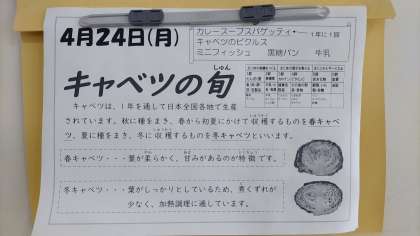 4月24日(月)
カレースープスパゲッティ 1年に1回
キャベツのピクルス
ミニフィッシュ 黒糖パン 牛乳
しゅん
キャベツの旬
キャベツは、1年を通して日本全国各地で生産
されています。秋に種をまき、春から初夏にかけて収穫するものを春キャベ
ツ、夏に種をまき、冬に収穫するものを冬キャベツといいます。
春キャベツ・・・葉が柔らかく、甘みがあるのが特徴です。
冬キャベツ・・・葉がしっかりとしているため、煮くずれが
少なく、加熱調理に適しています。